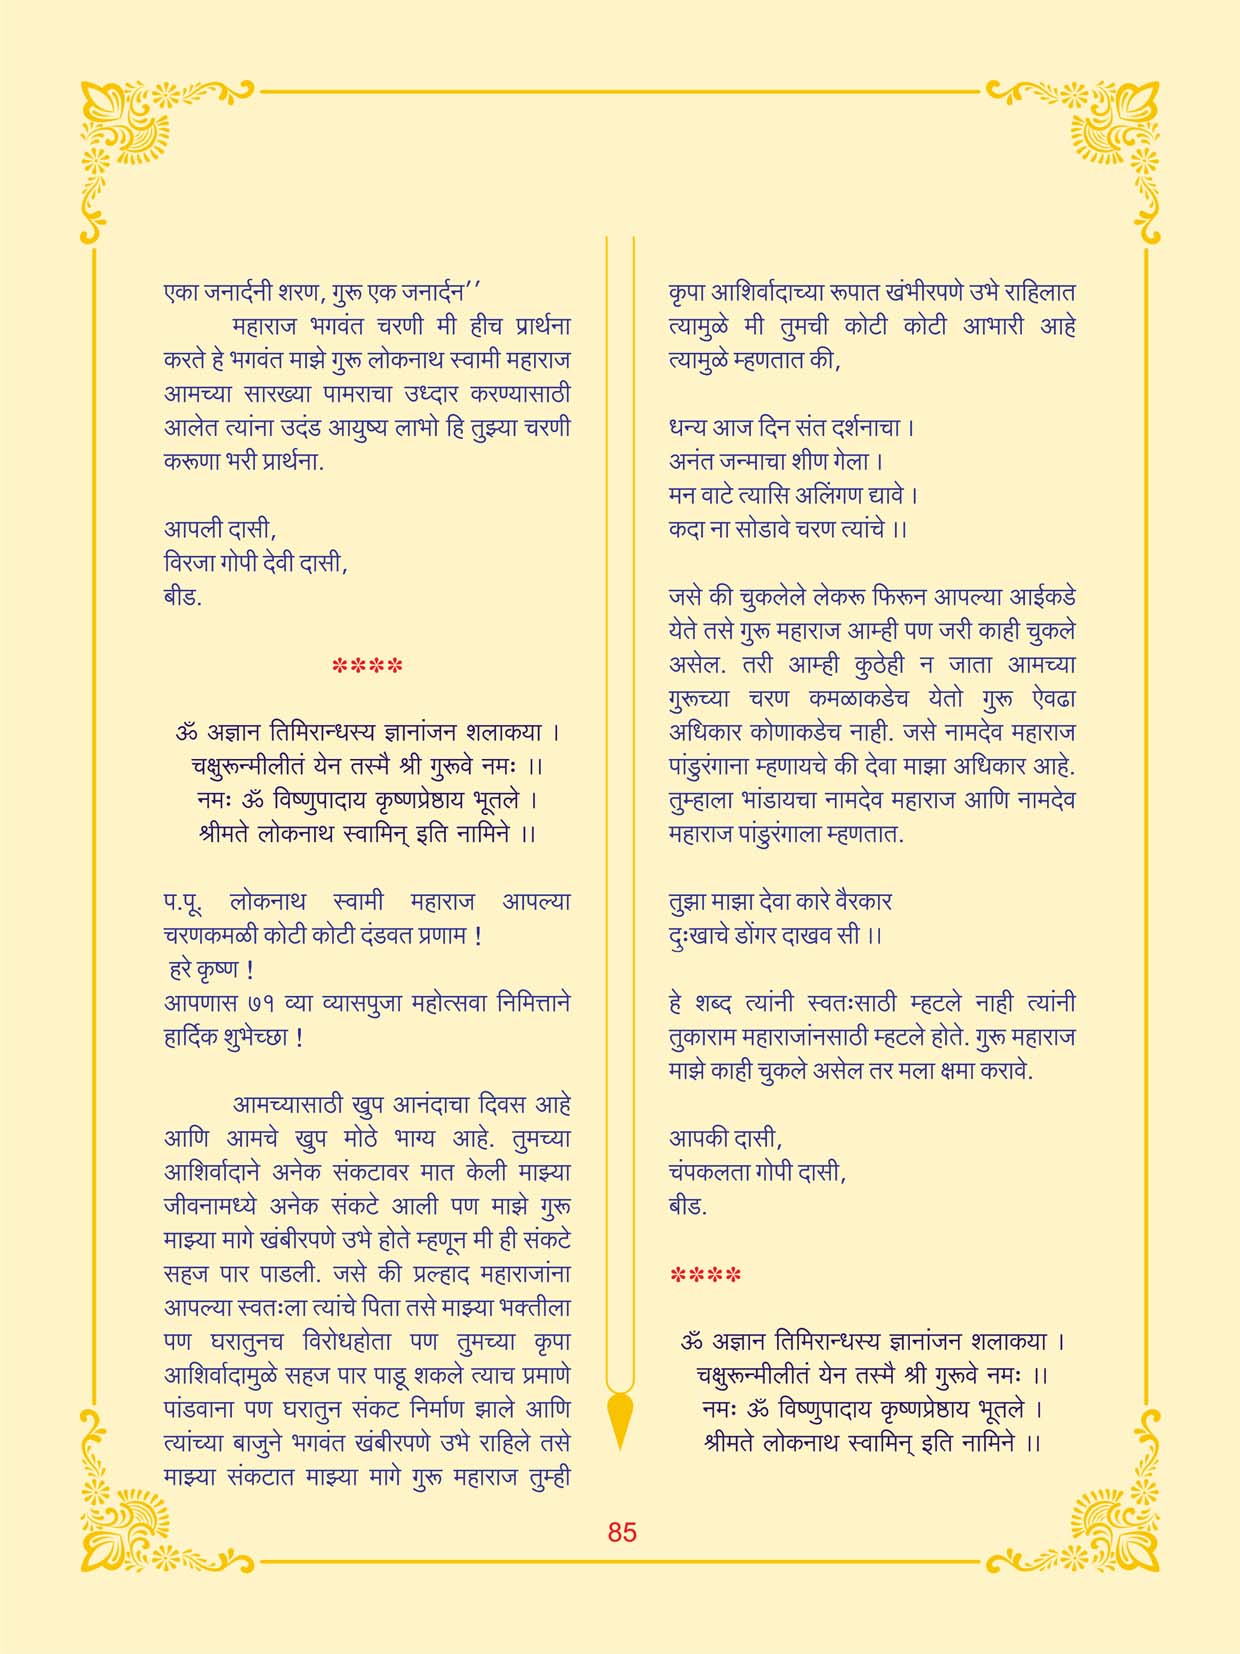 एका जनार्दनी शरण, गुरू एक जनार्दन’’
महाराज भगवंत चरणी मी हीच प्रार्थना
करते हे भगवंत माझे गुरू लोकनाथ स्वामी महाराज
आमच्या सारख्या पामराचा उध्दार करण्यासाठी
आलेत त्यांना उदंड आयुष्य लाभो हि तुझ्या चरणी
करूणा भरी प्रार्थना.
आपली दासी,
विरजा गोपी देवी दासी,
बीड.
****
ॐ अज्ञान तिमिरान्धस्य ज्ञानांजन शलाकया ।
चक्षुरून्मीलीतं येन तस्मै श्री गुरूवे नमः ।।
नमः ॐ विष्णुपादाय कृष्णप्रेष्ठाय भूतले ।
श्रीमते लोकनाथ स्वामिन् इति नामिने ।।
प.पू. लोकनाथ स्वामी महाराज आपल्या
चरणकमळी कोटी कोटी दंडवत प्रणाम !
हरे कृष्ण !
आपणास ७१ व्या व्यासपुजा महोत्सवा निमित्ताने
हार्दिक शुभेच्छा !
आमच्यासाठी खुप आनंदाचा दिवस आहे
आणि आमचे खुप मोठे भाग्य आहे. तुमच्या
आशिर्वादाने अनेक संकटावर मात केली माझ्या
जीवनामध्ये अनेक संकटे आली पण माझे गुरू
माझ्या मागे खंबीरपणे उभे होते म्हणून मी ही संकटे
सहज पार पाडली. जसे की प्रल्हाद महाराजांना
आपल्या स्वतःला त्यांचे पिता तसे माझ्या भक्तीला
पण घरातुनच विरोधहोता पण तुमच्या कृपा
आशिर्वादामुळे सहज पार पाडू शकले त्याच प्रमाणे
पांडवाना पण घरातुन संकट निर्माण झाले आणि
त्यांच्या बाजुने भगवंत खंबीरपणे उभे राहिले तसे
माझ्या संकटात माझ्या मागे गुरू महाराज तुम्ही
कृपा आशिर्वादाच्या रूपात खंभीरपणे उभे राहिलात
त्यामुळे मी तुमची कोटी कोटी आभारी आहे
त्यामुळे म्हणतात की,
धन्य आज दिन संत दर्शनाचा ।
अनंत जन्माचा शीण गेला ।
मन वाटे त्यासि अलिंगण द्यावे ।
कदा ना सोडावे चरण त्यांचे ।।
जसे की चुकलेले लेकरू फिरून आपल्या आईकडे
येते तसे गुरू महाराज आम्ही पण जरी काही चुकले
असेल. तरी आम्ही कुठेही न जाता आमच्या
गुरूच्या चरण कमळाकडेच येतो गुरू ऐवढा
अधिकार कोणाकडेच नाही. जसे नामदेव महाराज
पांडुरंगाना म्हणायचे की देवा माझा अधिकार आहे.
तुम्हाला भांडायचा नामदेव महाराज आणि नामदेव
महाराज पांडुरंगाला म्हणतात.
तुझा माझा देवा कारे वैरकार
दुःखाचे डोंगर दाखव सी ।।
हे शब्द त्यांनी स्वतःसाठी म्हटले नाही त्यांनी
तुकाराम महाराजांनसाठी म्हटले होते. गुरू महाराज
माझे काही चुकले असेल तर मला क्षमा करावे.
आपकी दासी,
चंपकलता गोपी दासी,
बीड.
****
ॐ अज्ञान तिमिरान्धस्य ज्ञानांजन शलाकया ।
चक्षुरून्मीलीतं येन तस्मै श्री गुरूवे नमः ।।
नमः ॐ विष्णुपादाय कृष्णप्रेष्ठाय भूतले ।
श्रीमते लोकनाथ स्वामिन् इति नामिने ।।
85